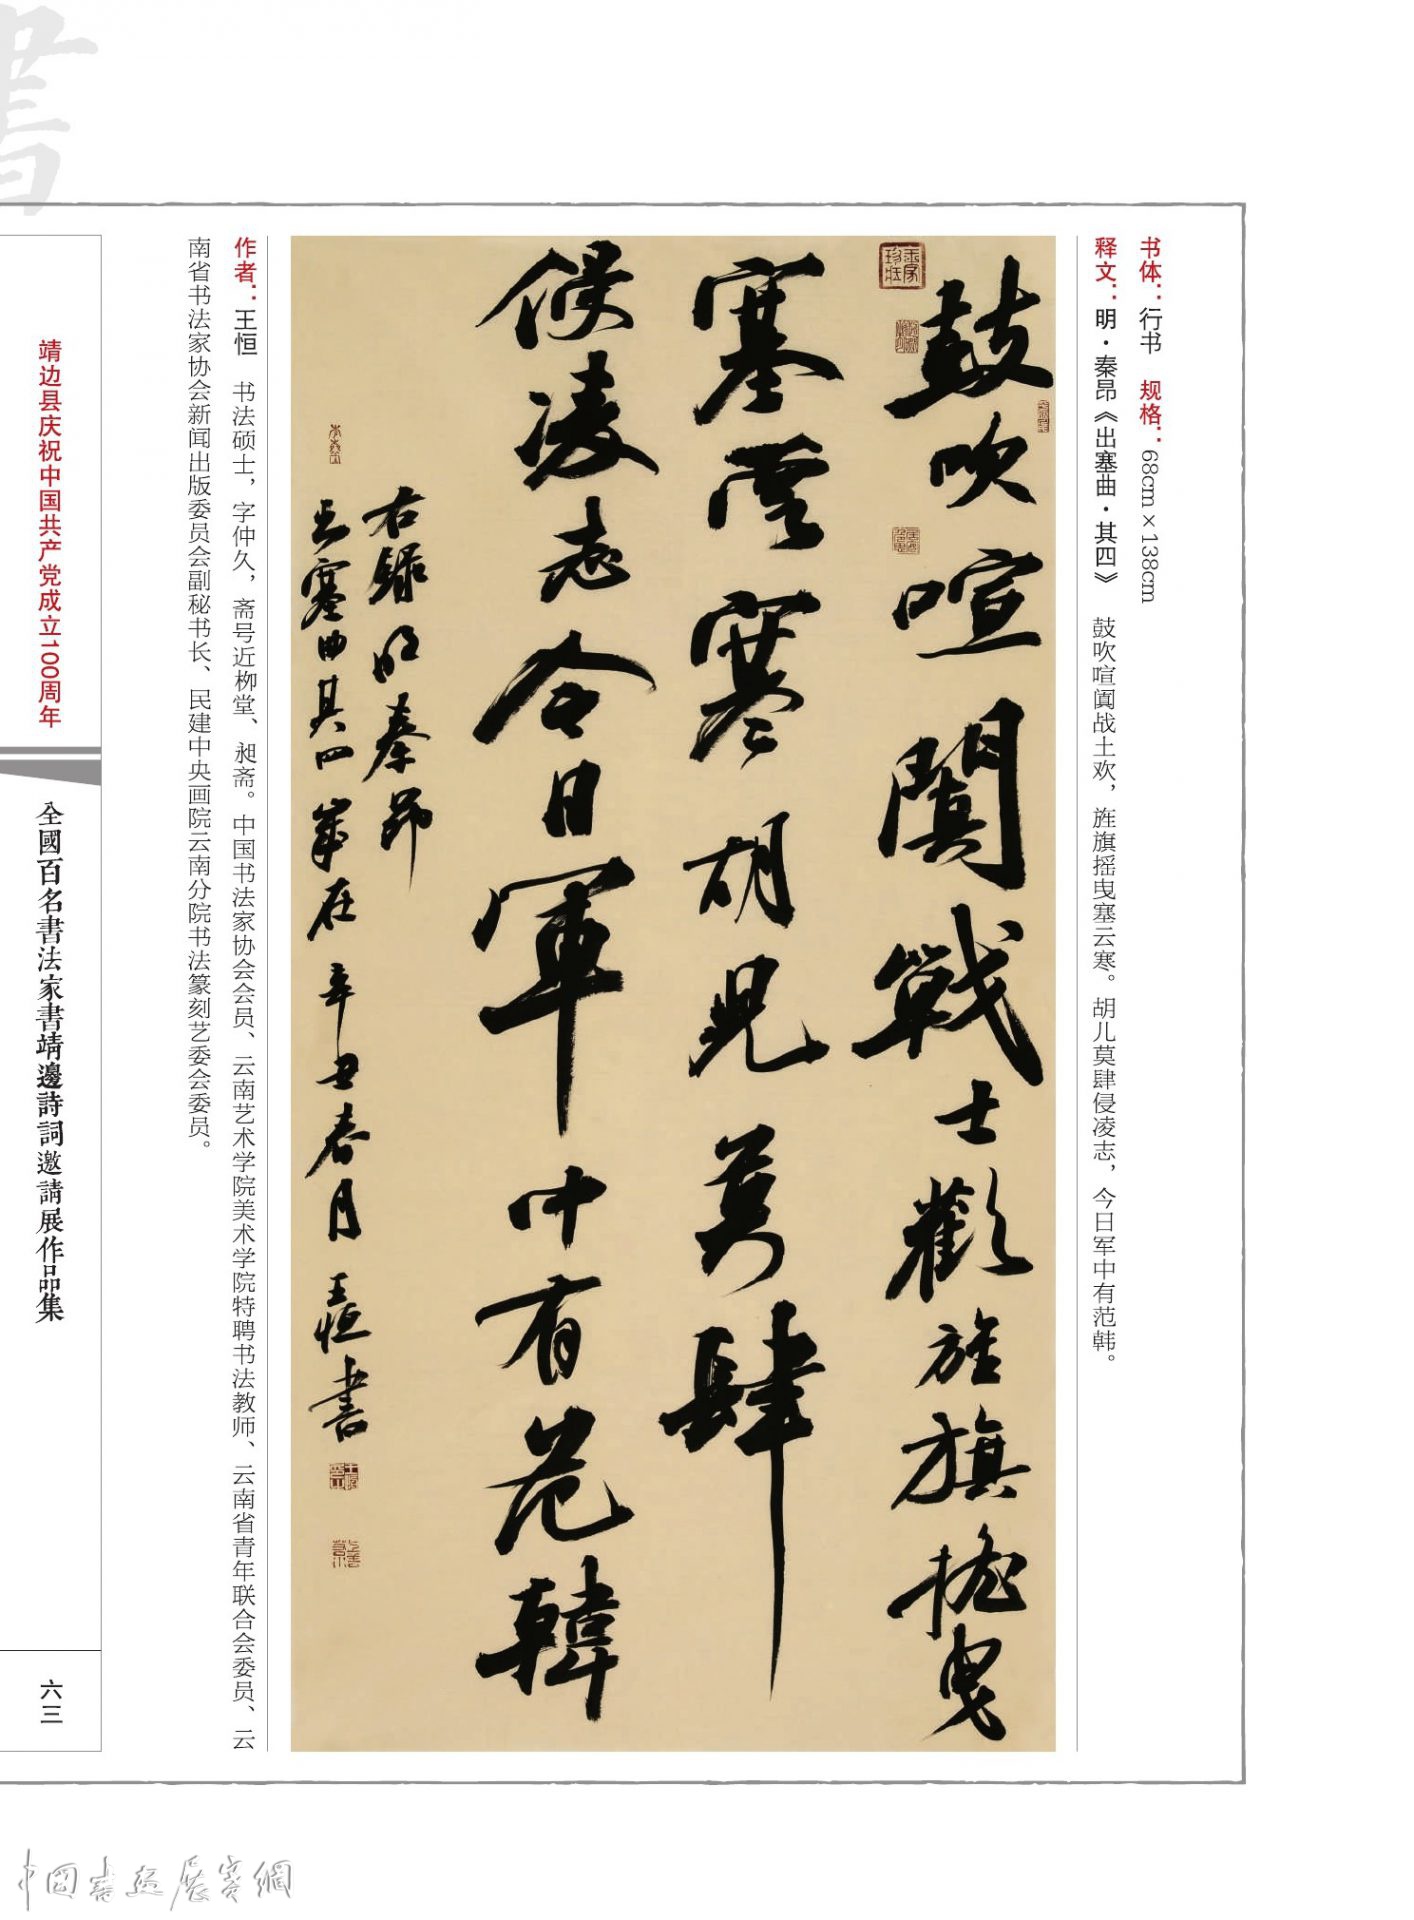 書
书体：行书　规格：68cm×138cm
释文：明·秦昂《出塞曲·其四》　鼓吹喧阗战士欢，旌旗摇曳塞云寒。胡儿莫肆侵凌志，今日军中有范韩。
鼓吹喧闐戰士歡旌旗摇曳
塞雲寒胡兒莫肆
侵凌志今日軍中有范韓
右録明秦昂
出塞曲其四 歲在辛丑春月 王恒書
作者：王恒　书法硕士，字仲久，斋号近柳堂、昶斋。中国书法家协会会员、云南艺术学院美术学院特聘书法教师、云南省青年联合会委员、云
南省书法家协会新闻出版委员会副秘书长、民建中央画院云南分院书法篆刻艺委会委员。
靖边县庆祝中国共产党成立100周年
全國百名書法家書靖邊詩詞邀請展作品集
六三
中國書畫展賽網